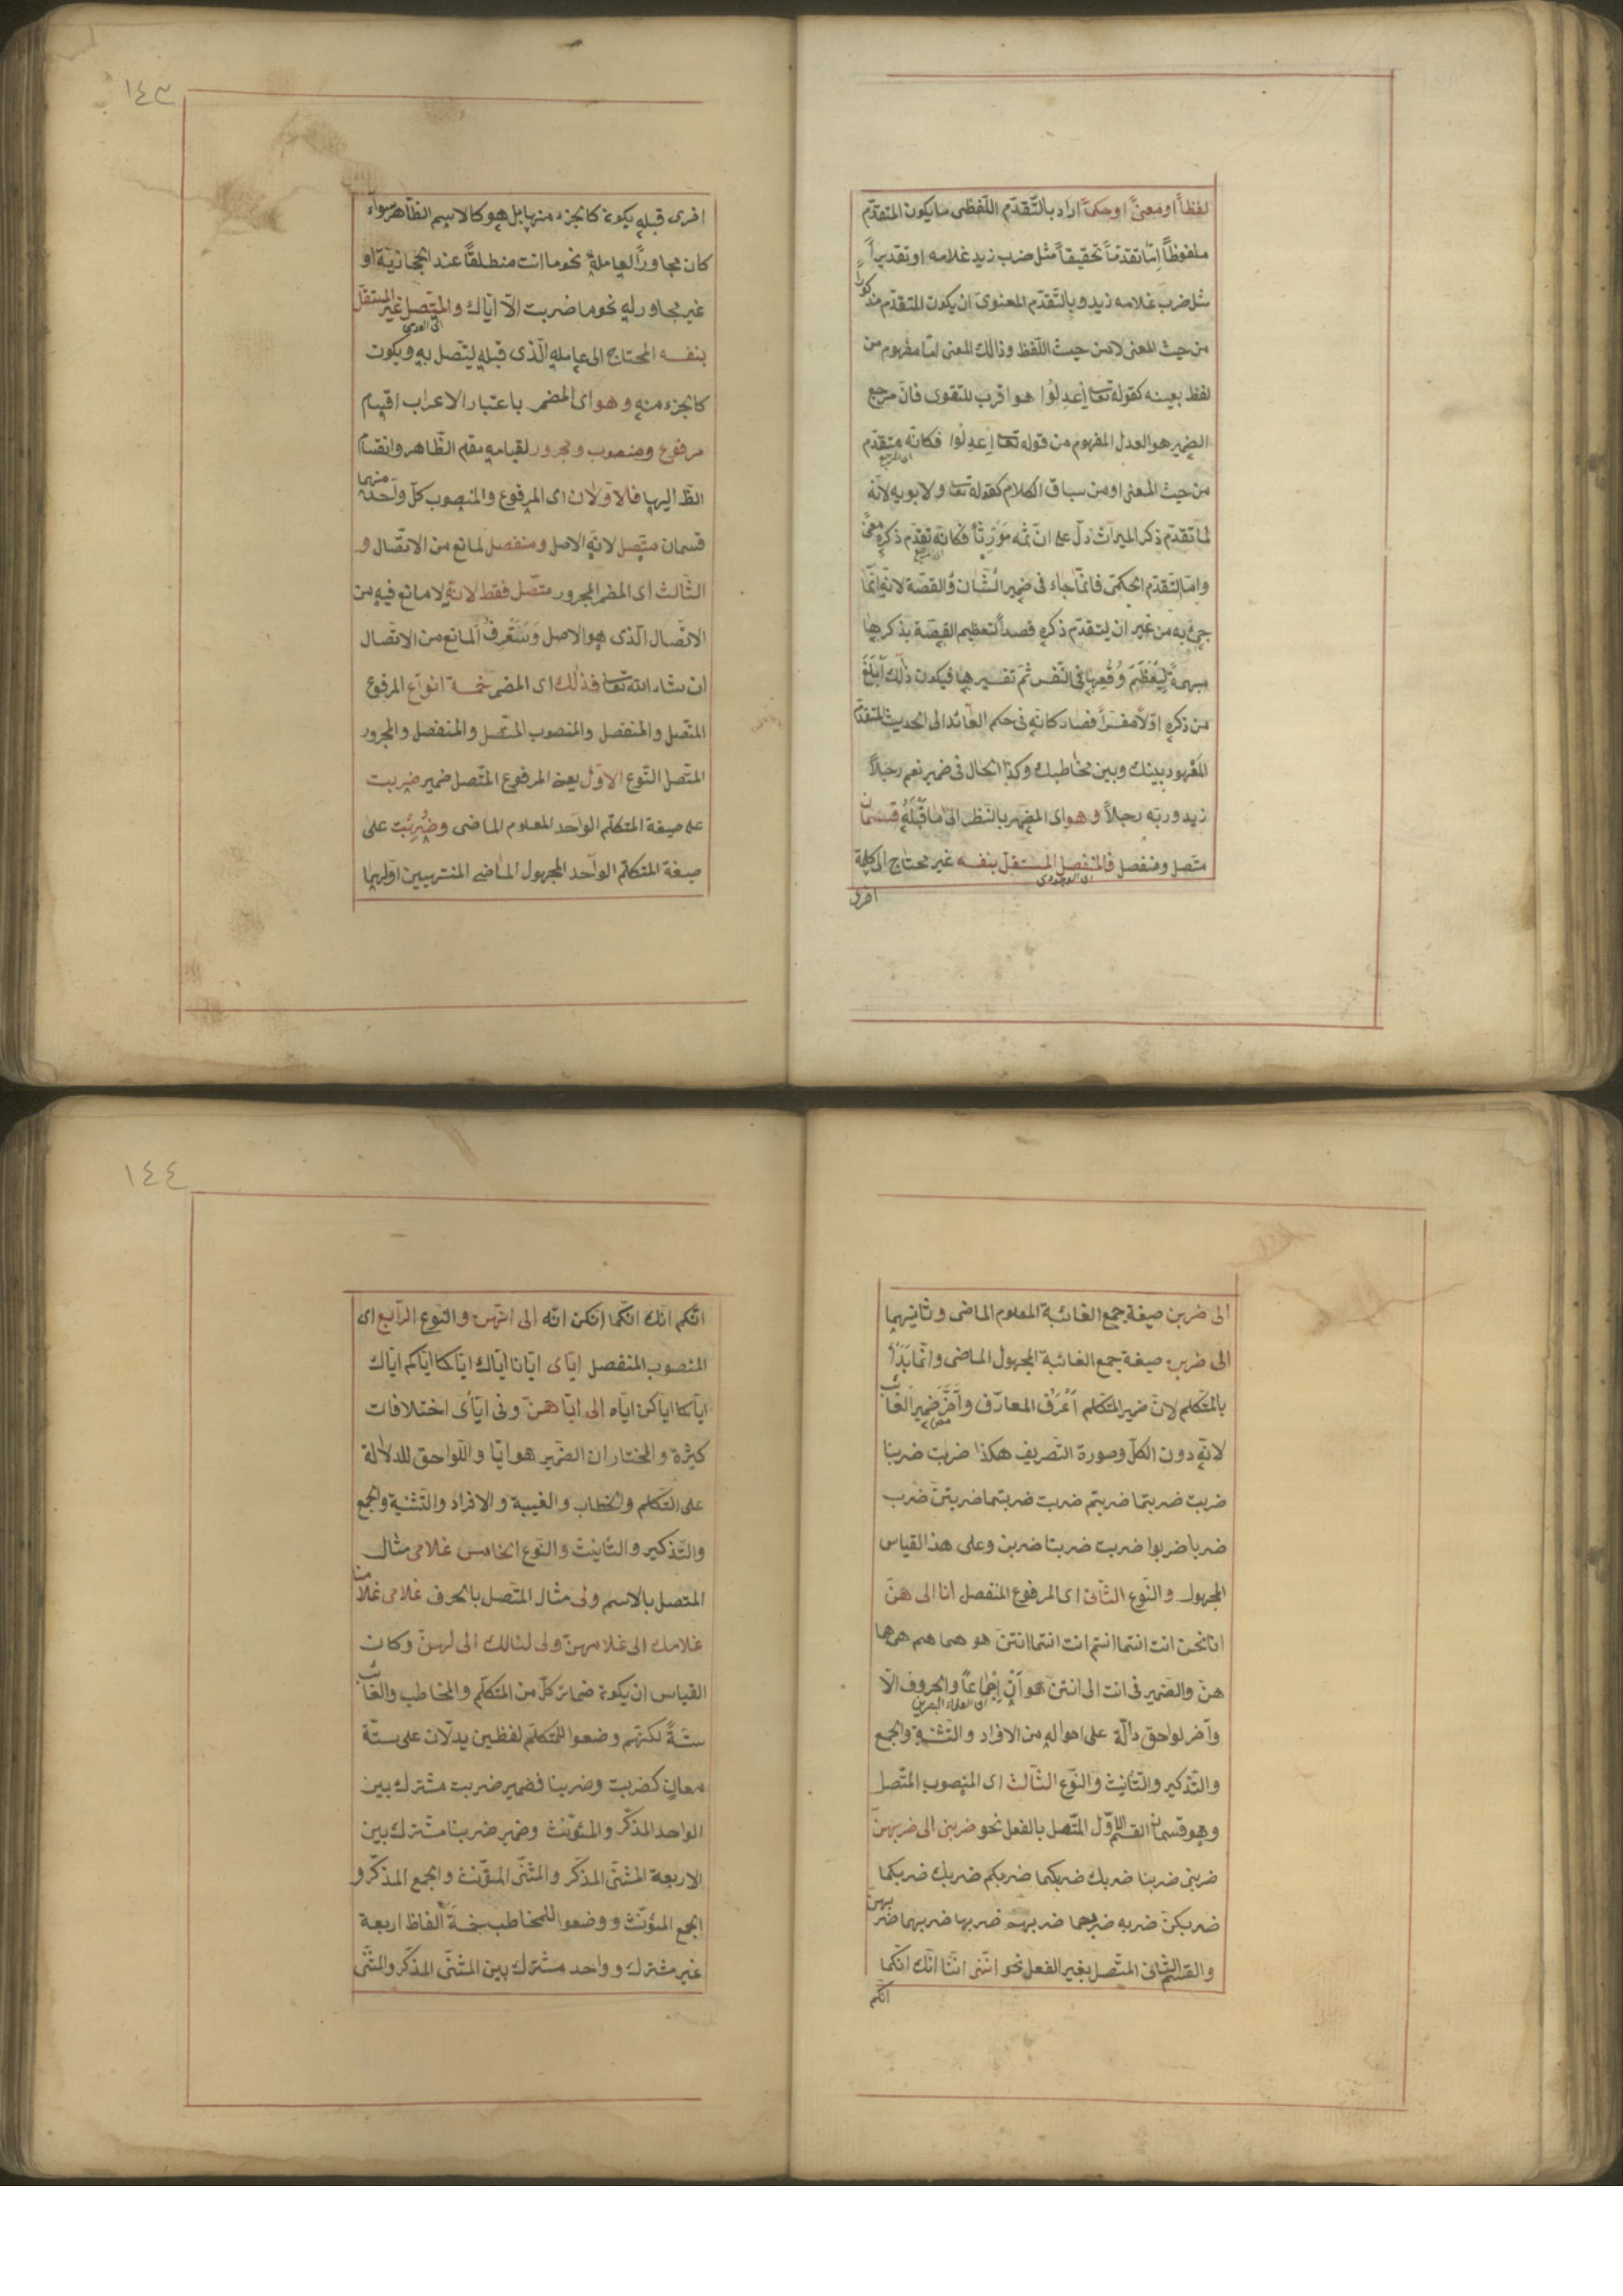 لفظاً او معنىً او حكماً اراد بالتّقدّم اللّفظى ما يكون المتقدّم
ملفوظاً امّا تقدّماً تحقيقاً مثل ضرب زيد غلامه او تقديراً
مثل ضرب غلامه زيد وبالتّقدّم المعنوى ان يكون المتقدّم مذكوراً
من حيث المعنى لا من حيث اللّفظ وذلك المعنى امّا مفهوم من
لفظ بعينه كقوله تعا اِعدِلُوا هو اقرب للتقوى فانّ مرجع
الضمير هو العدل المفهوم من قوله تعا اِعدِلُوا فكانّه متقدّم
من حيث المعنى او من سياق الكلام كقوله تعا ولابويه لانّه
لمّا تقدّم ذكر الميراث دلّ على انّ ثمّه مورِثاً فكانّه تقدّم ذكره معنىً
وامّا التقدّم الحكمى فانّما جاء فى ضمير الشّان والقصّة لانّه انّما
جئ به من غير ان يتقدّم ذكره قصداً لتعظيم القصّة بذكرها
مبهمةً ليَعْظُمَ وقعها فى النّفس ثمّ تفسيرها فيكون ذلك ابلغ
من ذكره اوّلاً مفسّراً فصار كانّه فى حكم العائد الى الحديث المتقدّم
المعهود بينك وبين مخاطبك وكذا الحال فى ضمير نعم رجلاً
زيد وربّه رجلاً وهو اى المضمر بالنّظر الى ما قبله قسمان
متّصل ومنفصل فالمنفصل المستقلّ بنفسه غير محتاج الى كلمة
اخرى
١٤٣
اخرى قبله يكون كالجزء منها بل هو كالاسم الظّاهر سواء
كان مجاوراً لعامله نحو ما انت منطلقاً عند الحجازيّة او
غير مجاور له نحو ما ضربت الّا ايّاك والمتّصل غير المستقلّ
بنفسه المحتاج الى عامله الّذى قبله ليتّصل به ويكون
كالجزء منه وهو اى المضمر باعتبار الاعراب اقسام
مرفوع ومنصوب ومجرور لقيامه مقام الظّاهر وانقسام
الظّ اليها فالاوّلان اى المرفوع والمنصوب كلّ واحد منهما
قسمان متّصل لانّه الاصل ومنفصل لمانع من الاتّصال و
الثّالث اى المضمر المجرور متّصل فقط لانّه لا مانع فيه من
الاتّصال الّذى هو الاصل وَسَتَعْرِفُ المانع من الاتّصال
ان شاء الله تعا فذلك اى المضمر خمسة انواع المرفوع
المتّصل والمنفصل والمنصوب المتّصل والمنفصل والمجرور
المتّصل النّوع الاوّل يعنى المرفوع المتّصل ضمير ضربت
على صيغة المتكلّم الواحد المعلوم الماضى وضُرِبْت على
صيغة المتكلّم الواحد المجهول الماضى المنتهيين اوّلهما
الى ضربن صيغة جمع الغائبة المعلوم الماضى وثانيهما
الى ضربن صيغة جمع الغائبة المجهول الماضى وانّما بَدَأ
بالمتكلّم لانّ ضمير المتكلّم اَعْرَف المعارف وأخّر ضمير الغائب
لانّه دون الكلّ وصورة التّصريف هكذا ضربت ضربنا
ضربت ضربتما ضربتم ضربت ضربتما ضربتنّ ضرب
ضربا ضربوا ضربت ضربتا ضربن وعلى هذا القياس
المجهول والنّوع الثّانى اى المرفوع المنفصل انا الى هنّ
انا نحن انت انتما انتم انت انتما انتنّ هو هما هم هى هما
هنّ والضمير فى انت الى انتنّ هو أنْ اِجْماعاً والحروف الا
وآخر لواحق دالّة على احواله من الافراد والتّثنية والجمع
والتّذكير والتّأنيث والنّوع الثّالث اى المنصوب المتّصل
وهو قسمان القسم الاوّل المتّصل بالفعل نحو ضربنى الى ضربهنّ
ضربنى ضربنا ضربك ضربكما ضربكم ضربك ضربكما
ضربكنّ ضربه ضربهما ضربهم ضربها ضربهما ضربهنّ
والقسم الثّانى المتّصل بغير الفعل نحو انّنى انّنا انّك انّكما
انّكم
١٤٤
انّكم انّك انّكما انّكن انّه الى انّهنّ والنّوع الرّابع اى
المنصوب المنفصل ايّاى ايّانا ايّاك ايّاكما ايّاكم ايّاك
ايّاكما ايّاكن ايّاه الى ايّاهنّ وفى ايّاى اختلافات
كثيرة والمختار ان الضّمير هو ايّا واللّواحق للدلالة
على التّكلم والخطاب والغيبة والافراد والتّثنية والجمع
والتّذكير والتّأنيث والنّوع الخامس غلامى مثال
المتصل بالاسم ولى مثال المتّصل بالحرف غلامى غلامنا
غلامك الى غلامهنّ ولى لنا لك الى لهنّ وكان
القياس ان يكون ضمائر كلّ من المتكلّم والمخاطب والغائب
ستّةً لكنّهم وضعوا للمتكلّم لفظين يدلّان على ستّة
معان كضربت وضربنا فضمير ضربت مشترك بين
الواحد المذكّر والمؤنّث وضمير ضربنا مشترك بين
الاربعة المثنّى المذكّر والمثنّى المؤنّث والجمع المذكّر و
الجمع المؤنّث ووضعوا للمخاطب خمسة الفاظ اربعة
غير مشترك وواحد مشترك بين المثنّى المذكّر والمثنّى